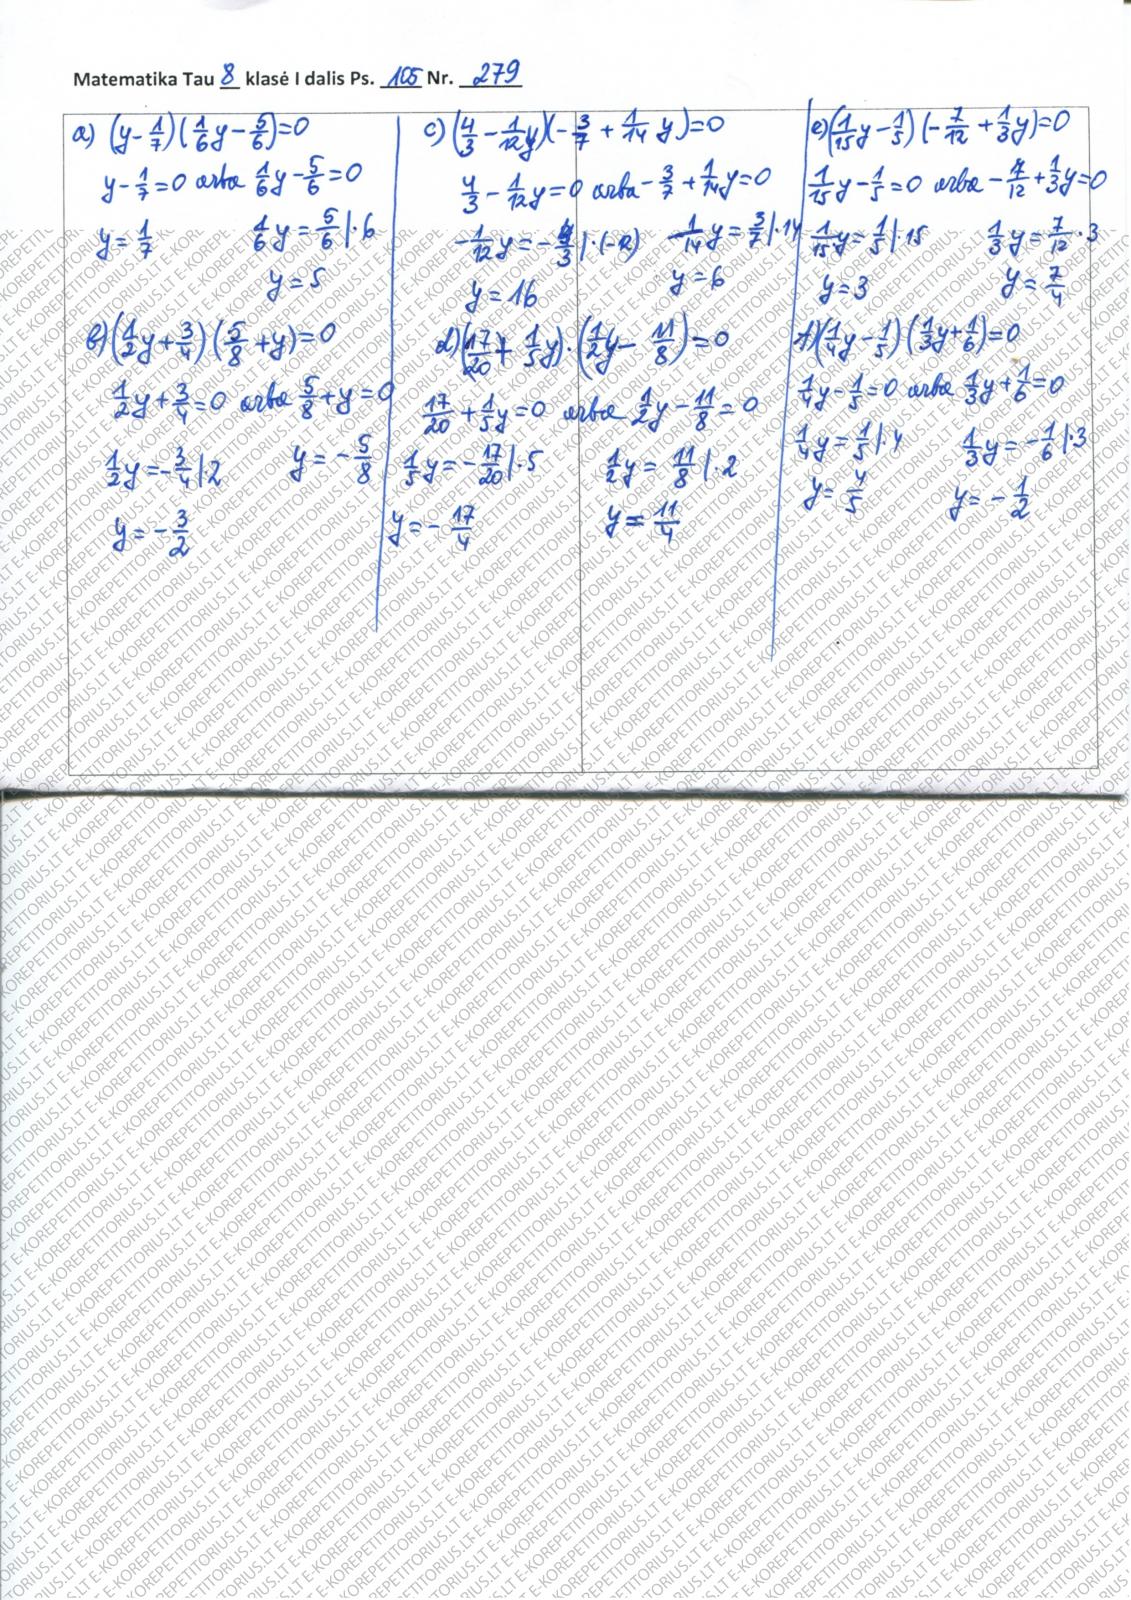 Matematika Tau 8 klasė I dalis Ps. 105 Nr. 279
a) (y - 1/7)(1/6y - 5/6)=0
y - 1/7 = 0 arba 1/6y - 5/6 = 0
y = 1/7
1/6y = 5/6 |·6
y = 5
b) (1/2y + 3/4)(5/8 + y) = 0
1/2y + 3/4 = 0 arba 5/8 + y = 0
1/2y = -3/4 |·2
y = -5/8
y = -3/2
c) (4/3 - 1/12y)(-3/7 + 1/14y)=0
4/3 - 1/12y = 0 arba -3/7 + 1/14y = 0
-1/12y = -4/3 |·(-12)
1/14y = 3/7 |·14
y = 16
y = 6
d) (17/20 + 1/5y)·(1/2y - 11/8) = 0
17/20 + 1/5y = 0 arba 1/2y - 11/8 = 0
1/5y = -17/20 |·5
1/2y = 11/8 |·2
y = -17/4
y = 11/4
e) (1/15y - 1/5)(-7/12 + 1/3y)=0
1/15y - 1/5 = 0 arba -7/12 + 1/3y = 0
1/15y = 1/5 |·15
1/3y = 7/12 ·3
y = 3
y = 7/4
f) (1/4y - 1/5)(1/3y + 1/6)=0
1/4y - 1/5 = 0 arba 1/3y + 1/6 = 0
1/4y = 1/5 |·4
1/3y = -1/6 |·3
y = 4/5
y = -1/2
E-KOREPETITORIUS.LT